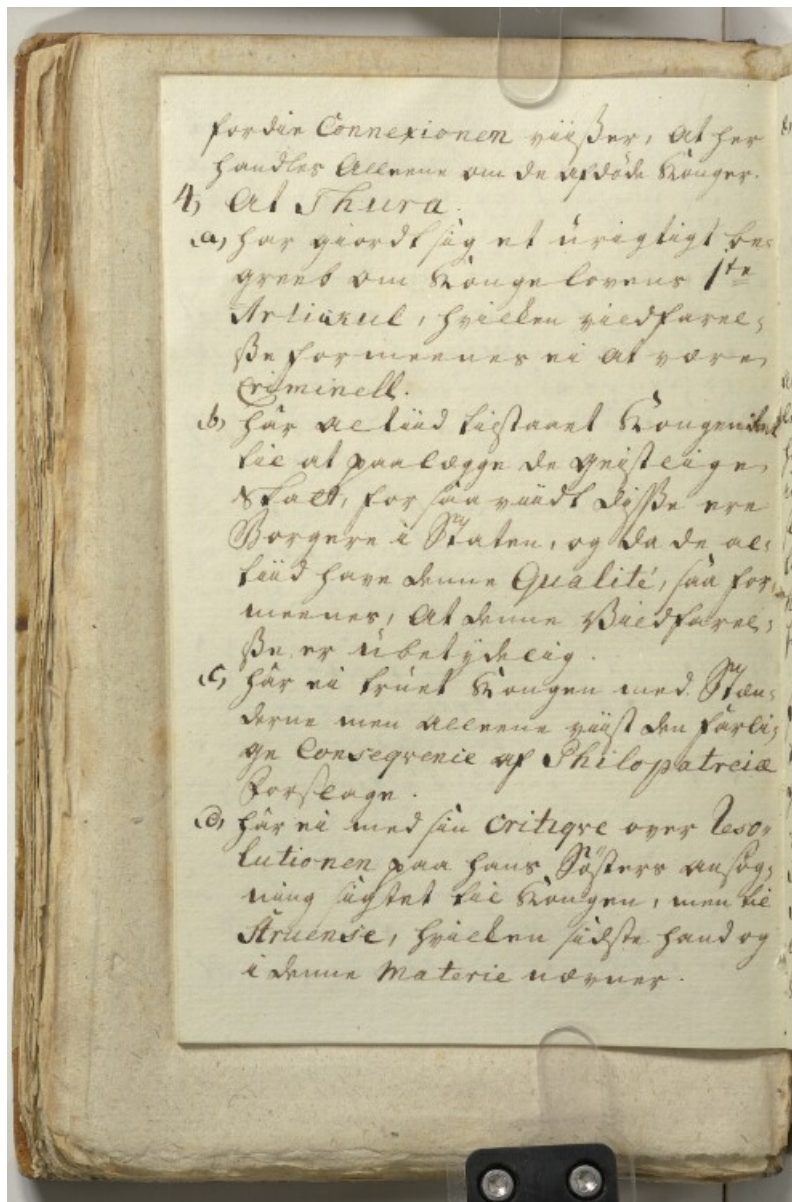 fordie Connexionen viiser, at her
handles Alleene om de afdøde Konger.
4) At Thura.
a) har giordt sig et urigtigt be-
greeb om Kongelovens 1te
Articul, hvilken vildfarel-
ße formeenes ei at være
Criminell.
b) har altiid tilstaaet Kongen
til at paalægge de geistlige
Skatt, for saa viidt diße ere
Borgere i Staten, og da de al-
tiid have denne Qualité, saa for-
meenes, at denne Vildfarel-
ße er ubetydelig.
c) har ei truet Kongen med Stæn-
derne men alleene viist den farli-
ge Conseqvenie af Philopatreiæ
Forslage.
d) har ei med sin critiqve over Reso-
lutionen paa hans Søsters ansøg-
ning sigtet til Kongen, men til
Struense, hvilken sidste hand og
i denne Materie nævner.